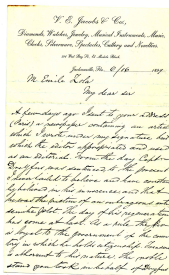 V. E. Jacobs & Co.,
Diamonds, Watches, Jewelry, Musical Instruments, Music,
Clocks, Silverware, Spectacles, Cutlery and Novelties.
Jacksonville, Fla. 6/16 189
M. Emile Zola
My dear sir
A few days ago I sent to your address
(Paris) a newspaper containing an article
which I wrote under my signature and
which the editor appropriated and used
as an editorial. From the day Captain
Dreyfus was sentenced to the present
I have failed to believe and have
believed in his innocence and that he
was the victim of an outrageous and
senseless plot. The day of his vindication
has come at last. As a
is loyal to the government of the
in which he holds citizenship
is inherent to his nature. The noble
stand you took in behalf of Dreyfus